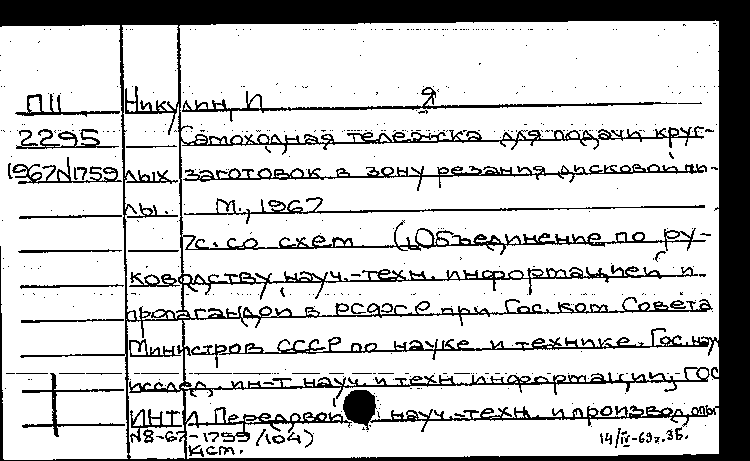 П11 Никулин, И Я
2295 Самоходная тележка для подачи круг-
1967N1759 лых заготовок в зону резания дисковой пи-
лы. М., 1967
7с. со схем (Объединение по ру-
ководству науч.-техн. информацией и
пропагандой в РСФСР при Гос. ком. Совета
Министров СССР по науке и технике. Гос. науч
исслед. ин-т науч. и техн. информации, ГОС
ИНТИ Передовой науч.-техн. и производ. опыт
N8-67-1759/104)
14/IV-69г. ЗБ.